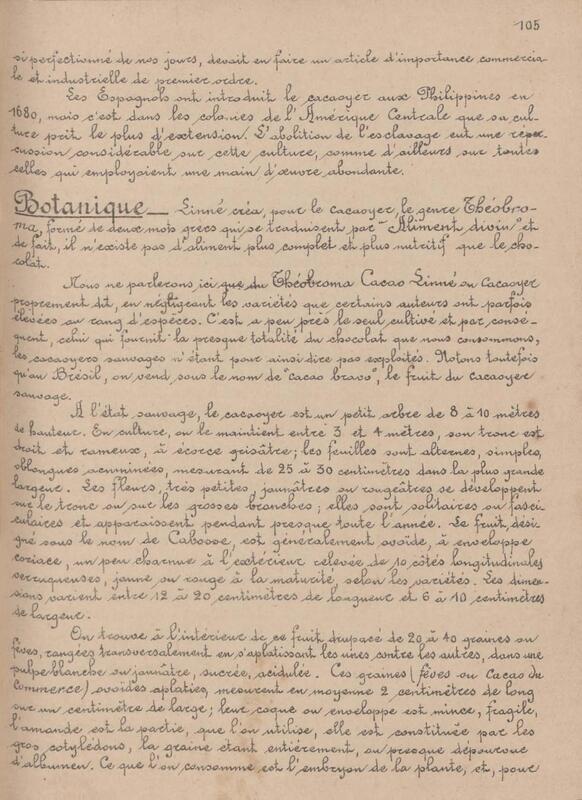 105
si perfectionné de nos jours, devait en faire un article d'importance commercia-
le et industrielle de premier ordre.
Les Espagnols ont introduit le cacaoyer aux Philippines en
1680, mais c'est dans les colonies de l'Amérique Centrale que sa cul-
ture prit le plus d'extension. L'abolition de l'esclavage eut une réper-
cussion considérable sur cette culture, comme d'ailleurs sur toutes
celles qui employaient une main d'œuvre abondante.
Botanique — Linné créa, pour le cacaoyer, le genre Théobro-
ma, formé de deux mots grecs qui se traduisent par "Aliment divin" et
de fait, il n'existe pas d'aliment plus complet et plus nutritif que le cho-
colat.
Nous ne parlerons ici que du Théobroma Cacao Linné ou Cacaoyer
proprement dit, en négligeant les variétés que certains auteurs ont parfois
élevées au rang d'espèces. C'est a peu près le seul cultivé et par consé-
quent, celui qui fournit la presque totalité du chocolat que nous consommons,
les cacaoyers sauvages n'étant pour ainsi dire pas exploités. Notons toutefois
qu'au Brésil, on vend sous le nom de "cacao bravo", le fruit du cacaoyer
sauvage.
A l'état sauvage, le cacaoyer est un petit arbre de 8 à 10 mètres
de hauteur. En culture, on le maintient entre 3 et 4 mètres, son tronc est
droit et rameux, à écorce grisâtre; les feuilles sont alternes, simples,
oblongues acuminées, mesurant de 25 à 30 centimètres dans la plus grande
largeur. Les fleurs, très petites, jaunâtres ou rougeâtres se développent
sur le tronc ou sur les grosses branches; elles sont solitaires ou fasci-
culaires et apparaissent pendant presque toute l'année. Le fruit, dési-
gné sous le nom de Cabosse, est généralement ovoïde, à enveloppe
coriace, un peu charnue à l'extérieur relevée de 10 côtés longitudinales
verruqueuses, jaune ou rouge à la maturité, selon les variétés. Les dimen-
sions varient entre 12 à 20 centimètres de longueur et 6 à 10 centimètres
de largeur.
On trouve à l'intérieur de ce fruit drupacé de 20 à 40 graines ou
fèves, rangées transversalement en s'aplatissant les unes contre les autres, dans une
pulpe blanche ou jaunâtre, sucrée, acidulée. Ces graines (fèves ou cacao du
commerce) ovoïdes aplaties, mesurent en moyenne 2 centimètres de long
sur un centimètre de large; leur coque ou enveloppe est mince, fragile,
l'amande est la partie, que l'on utilise, elle est constituée par les
gros cotylédons, la graine étant entièrement, ou presque dépourvue
d'albumen. Ce que l'on consomme est l'embryon de la plante, et, pour